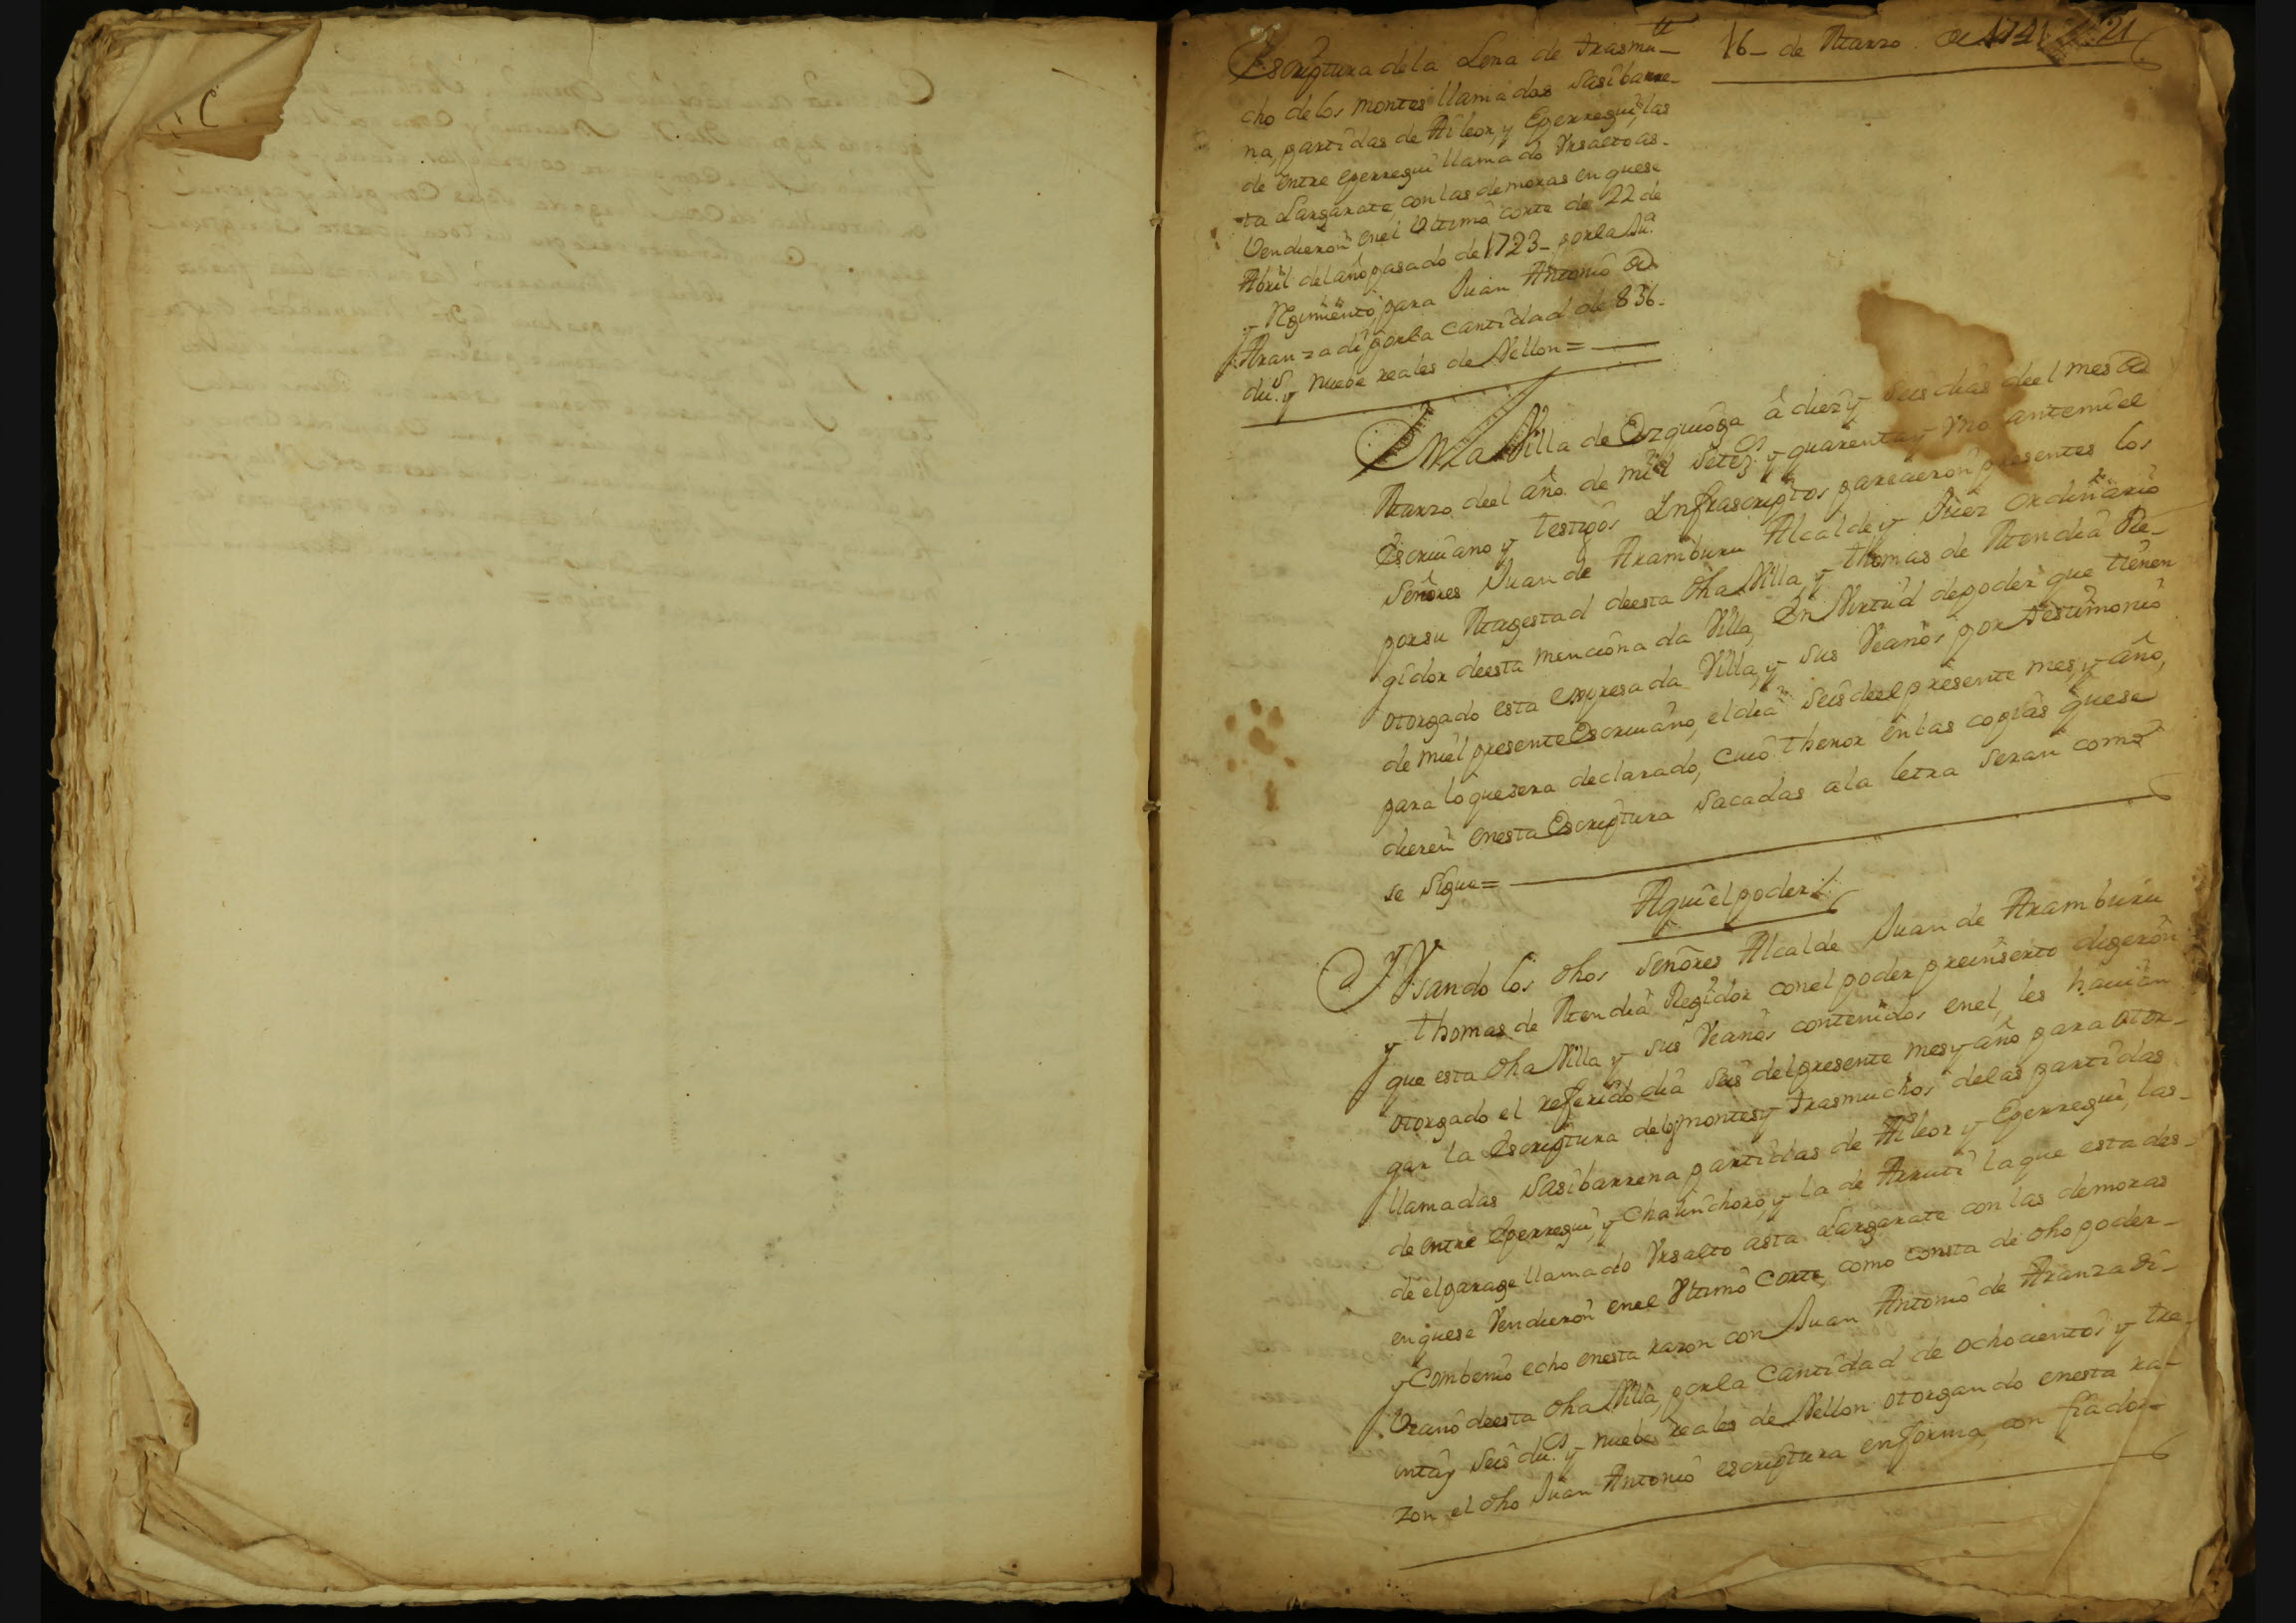 Escriptura de la Lena de trasmu-
cho de los montes llamados Sasibarre-
na, partidas de Aileor, y Eperregui, las
de entre eperregui llamado Vrsalto as-
ta Largarate, con las demoras en quese
Vendieron en el Vltimo corte de 22 de
Abril del año pasado de 1723_ por la Va.
y Regimiento, para Juan Antonio de
Aranzadi por la Cantidad de 836_
dus. y nuebe reales de Vellon =
16_ de Marzo de 1741 121
En la Villa de Ezquioga â diez y seis dias deel mes de
Marzo deel año de mil setezs. y quarenta y vno ante mi el
Escriuano y testigos Infrascriptos parecieron presentes los
Señores Juan de Aramburu Alcalde y Juez ordinario
por su Magestad deesta dha Villa, y thomas de Mendia Re-
gidor deesta mencionada Villa, En Virtud de poder que tienen
otorgado esta expresada Villa, y sus Vecinos por testimonio
de mi el presente Escriuano, el dia seis deel presente mes, y año,
para lo que sera declarado, cuio thenor en las copias quese
dieren en esta Escriptura sacadas ala letra seran como
se sigue =
Aqui el poder
Y Vsando los dhos Señores Alcalde Juan de Aramburu
y thomas de Mendia Regidor con el poder preinserto digeron
que esta dha Villa y sus Vecinos contenidos en el, les hauian
otorgado el referido dia seis del presente mes y año para otor-
gar la Escriptura delos montes y trasmuchos delas partidas
llamadas Sasibarrena partidas de Aileor y Eperregui, las-
de entre Eperregui, y Chainchoro, y la de Arruti la que esta des-
de el parage llamado Vrsalto asta Largarate con las demoras
en quese Vendieron en el Vltimo Corte, como consta de dho poder-
y Combenio echo en esta razon con Juan Antonio de Aranzadi-
Vzino deesta dha Villa, por la Cantidad de ochocientos y tre-
inta y seis dus. y nuebe reales de Vellon otorgando en esta ra-
zon el dho Juan Antonio escriptura en forma, con fiador-